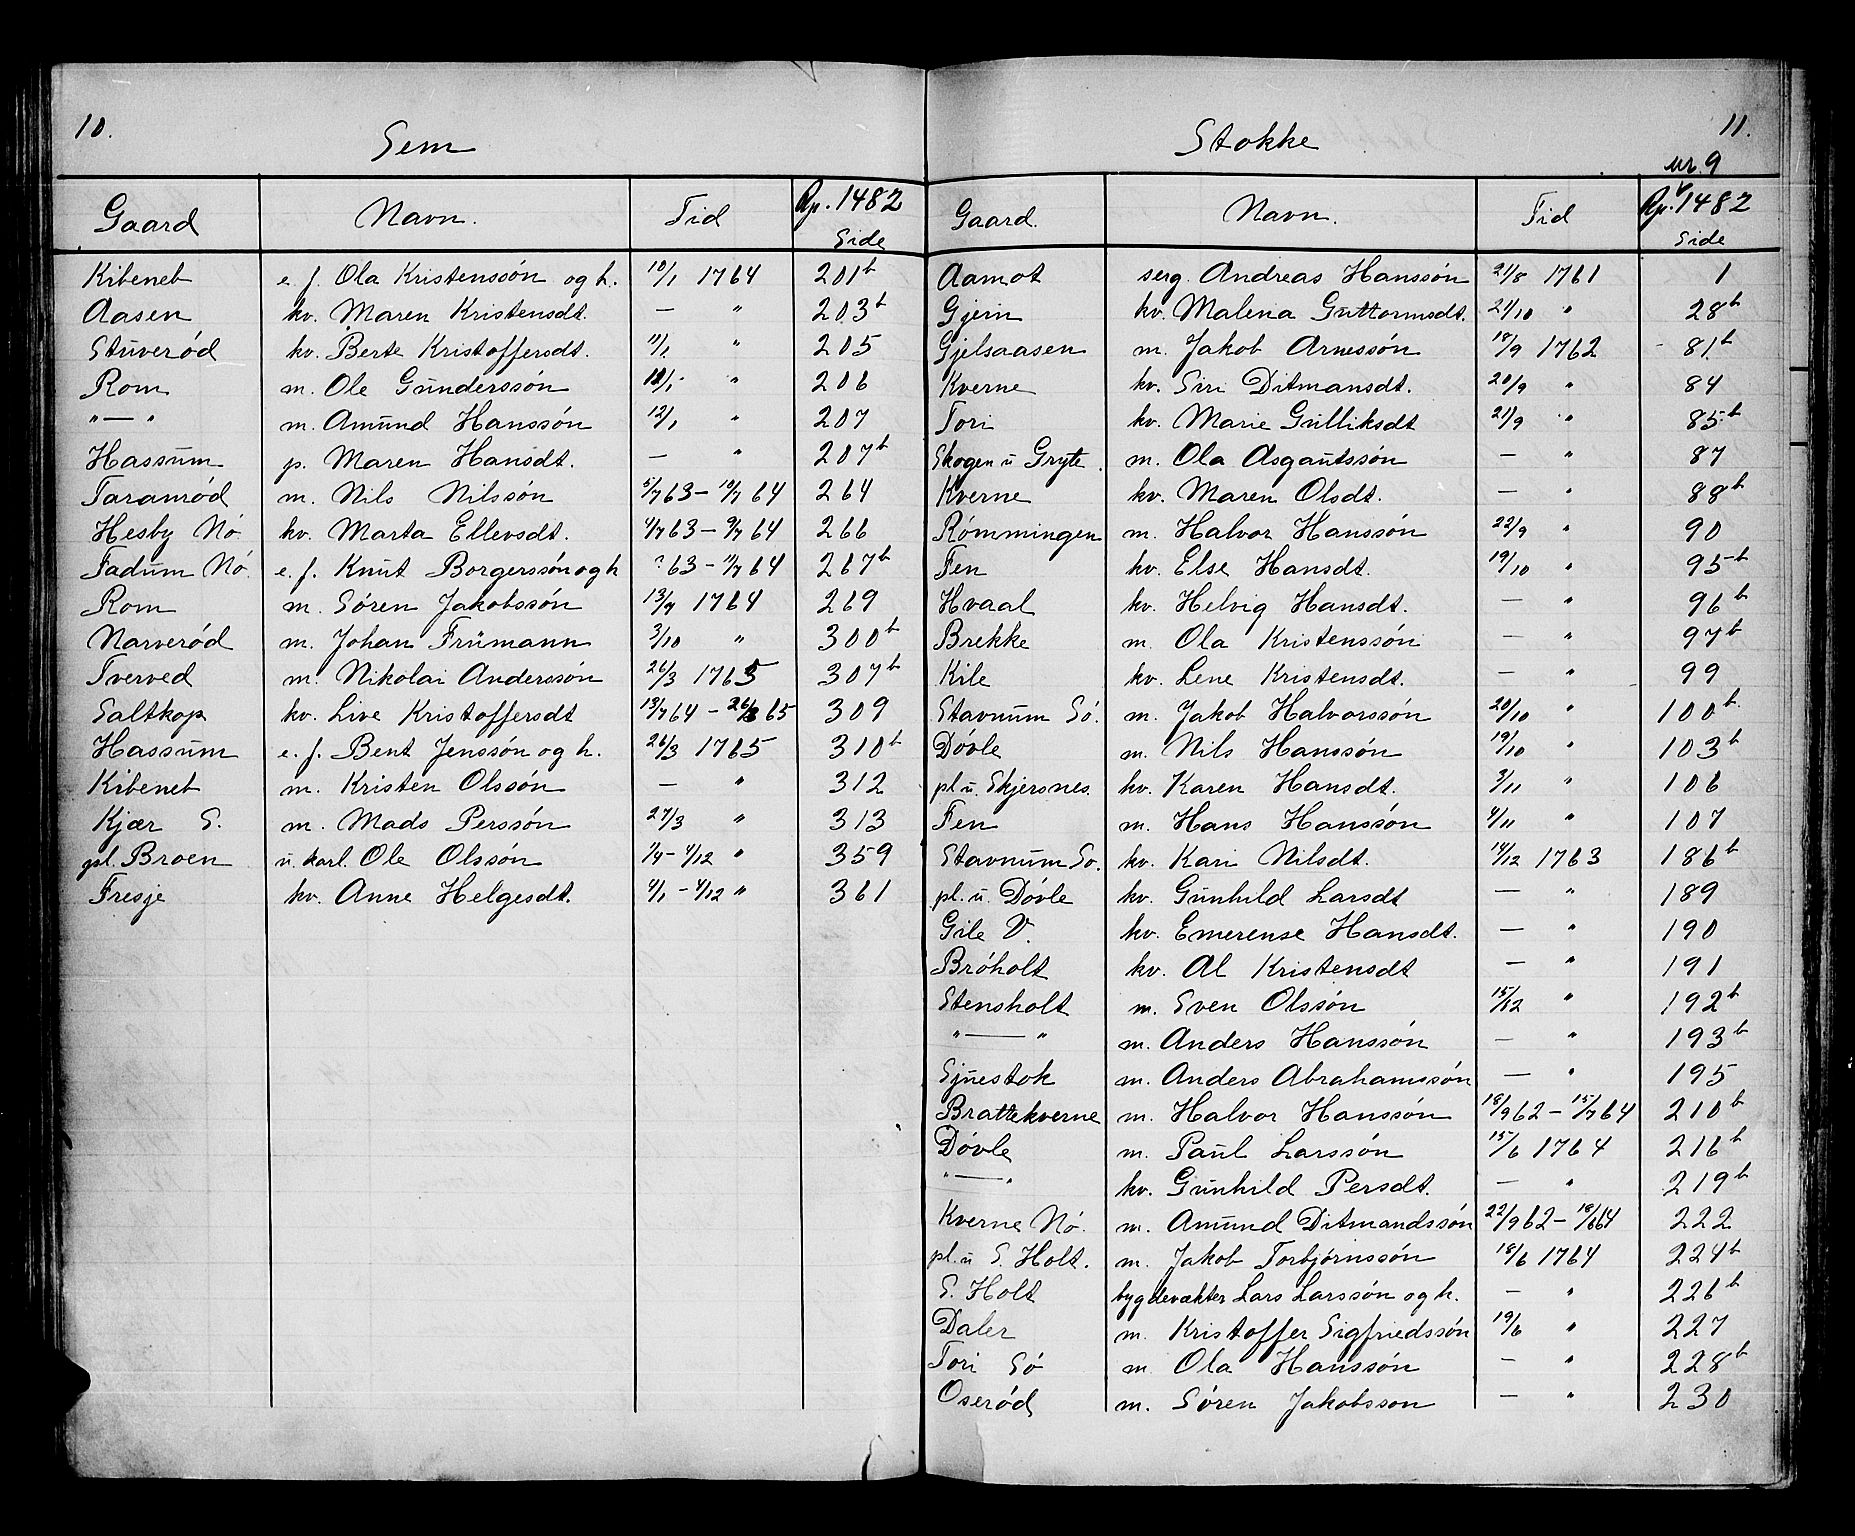 10.
Sem
Gaard Navn. Tid Rp. 1482 Side
Kibenet e. f. Ola Kristenssón og h. 10/1 1764 201b
Aasen kv. Maren Kristensdt. — " 203b
Stuveród kv. Berte Kristoffersdt. 11/1 " 205
Rom m. Ole Gunderssón " 206
"—" m. Amund Hanssón 12/1 " 207
Hassum p. Maren Hansdt. — " 207b
Taranród m. Nils Nilssón 5/7 63 — 10/7 64 264
Hesby Nó. kv. Marta Ellevsdt. 4/7 63 — 9/7 64 266
Fadum Nó. e. f. Knut Borgerssón og h ? 63 — 11/7 64 267b
Rom m. Sóren Jakobssón 13/7 1764 269
Narveród m. Johan Frümann 3/10 " 300b
Tverved m. Nikolai Anderssón 26/3 1765 307b
Saltkop kv. Live Kristoffersdt 13/7 64 — 26/3 65 309
Hassum e. f. Bent Jenssón og h. 26/3 1765 310b
Kibenet m. Kristen Olssón — " 312
Kjær S. m. Mads Perssón 27/3 " 313
pl. Broen u. karl Ole Olssón — 4/12 " 359
Fresje kv. Anne Helgesdt. 4/1 — 4/12 " 361
11.
Stokke
nr. 9
Gaard. Navn. Tid Rp. 1482 Side
Aamot serg. Andreas Hanssón 21/8 1761 1
Gjein kv. Malena Guttormsdt. 21/10 " 28b
Gjelsaasen m. Jakob Arnessón 18/9 1762 81b
Kverne kv. Siri Ditmansdt. 20/9 " 84
Tori kv. Marie Gulliksdt 21/9 " 85b
Skogen u Gryte m. Ola Asgautssón — " 87
Kverne kv. Maren Olsdt. — " 88b
Rómmingen m. Halvor Hanssón 22/9 " 90
Fen kv. Else Hansdt. 19/10 " 95b
Hvaal kv. Helvig Hansdt. — " 96b
Brekke m. Ola Kristenssón — " 97b
Kile kv. Lene Kristensdt. — " 99
Stavnum Só. m. Jakob Halvorssón 20/10 " 100b
Dóvle m. Nils Hanssón 19/10 " 103b
pl. u. Skjersnes. kv. Karen Hansdt. 3/11 " 106
Fen m. Hans Hanssón 4/11 " 107
Stavnum So. kv. Kari Nilsdt. 14/12 1763 186b
pl. u. Dóvle kv. Gunhild Larsdt — " 189
Gile V. kv. Emerense Hansdt. — " 190
Bróholt kv. Al Kristensdt — " 191
Stensholt m. Sven Olssón 15/12 " 192b
"—" m. Anders Hanssón — " 193b
Sjuestok m. Anders Abrahamssón — " 195
Brattekverne m. Halvor Hanssón 18/9 62 — 15/7 64 210b
Dóvle m. Paul Larssón 15/6 1764 216b
"—" kv. Gunhild Persdt. — " 219b
Kverne Nó. m. Amund Ditmandssón 22/9 62 — 18/6 64 222
pl. u S. Holt. m. Jakob Torbjórnssón 18/6 1764 224b
S. Holt bygdevækter Lars Larssón og h. — " 226b
Daler m. Kristoffer Sigfriedssón 19/6 " 227
Tori Só m. Ola Hanssón — " 228b
Oseród m. Sóren Jakobsson — " 230